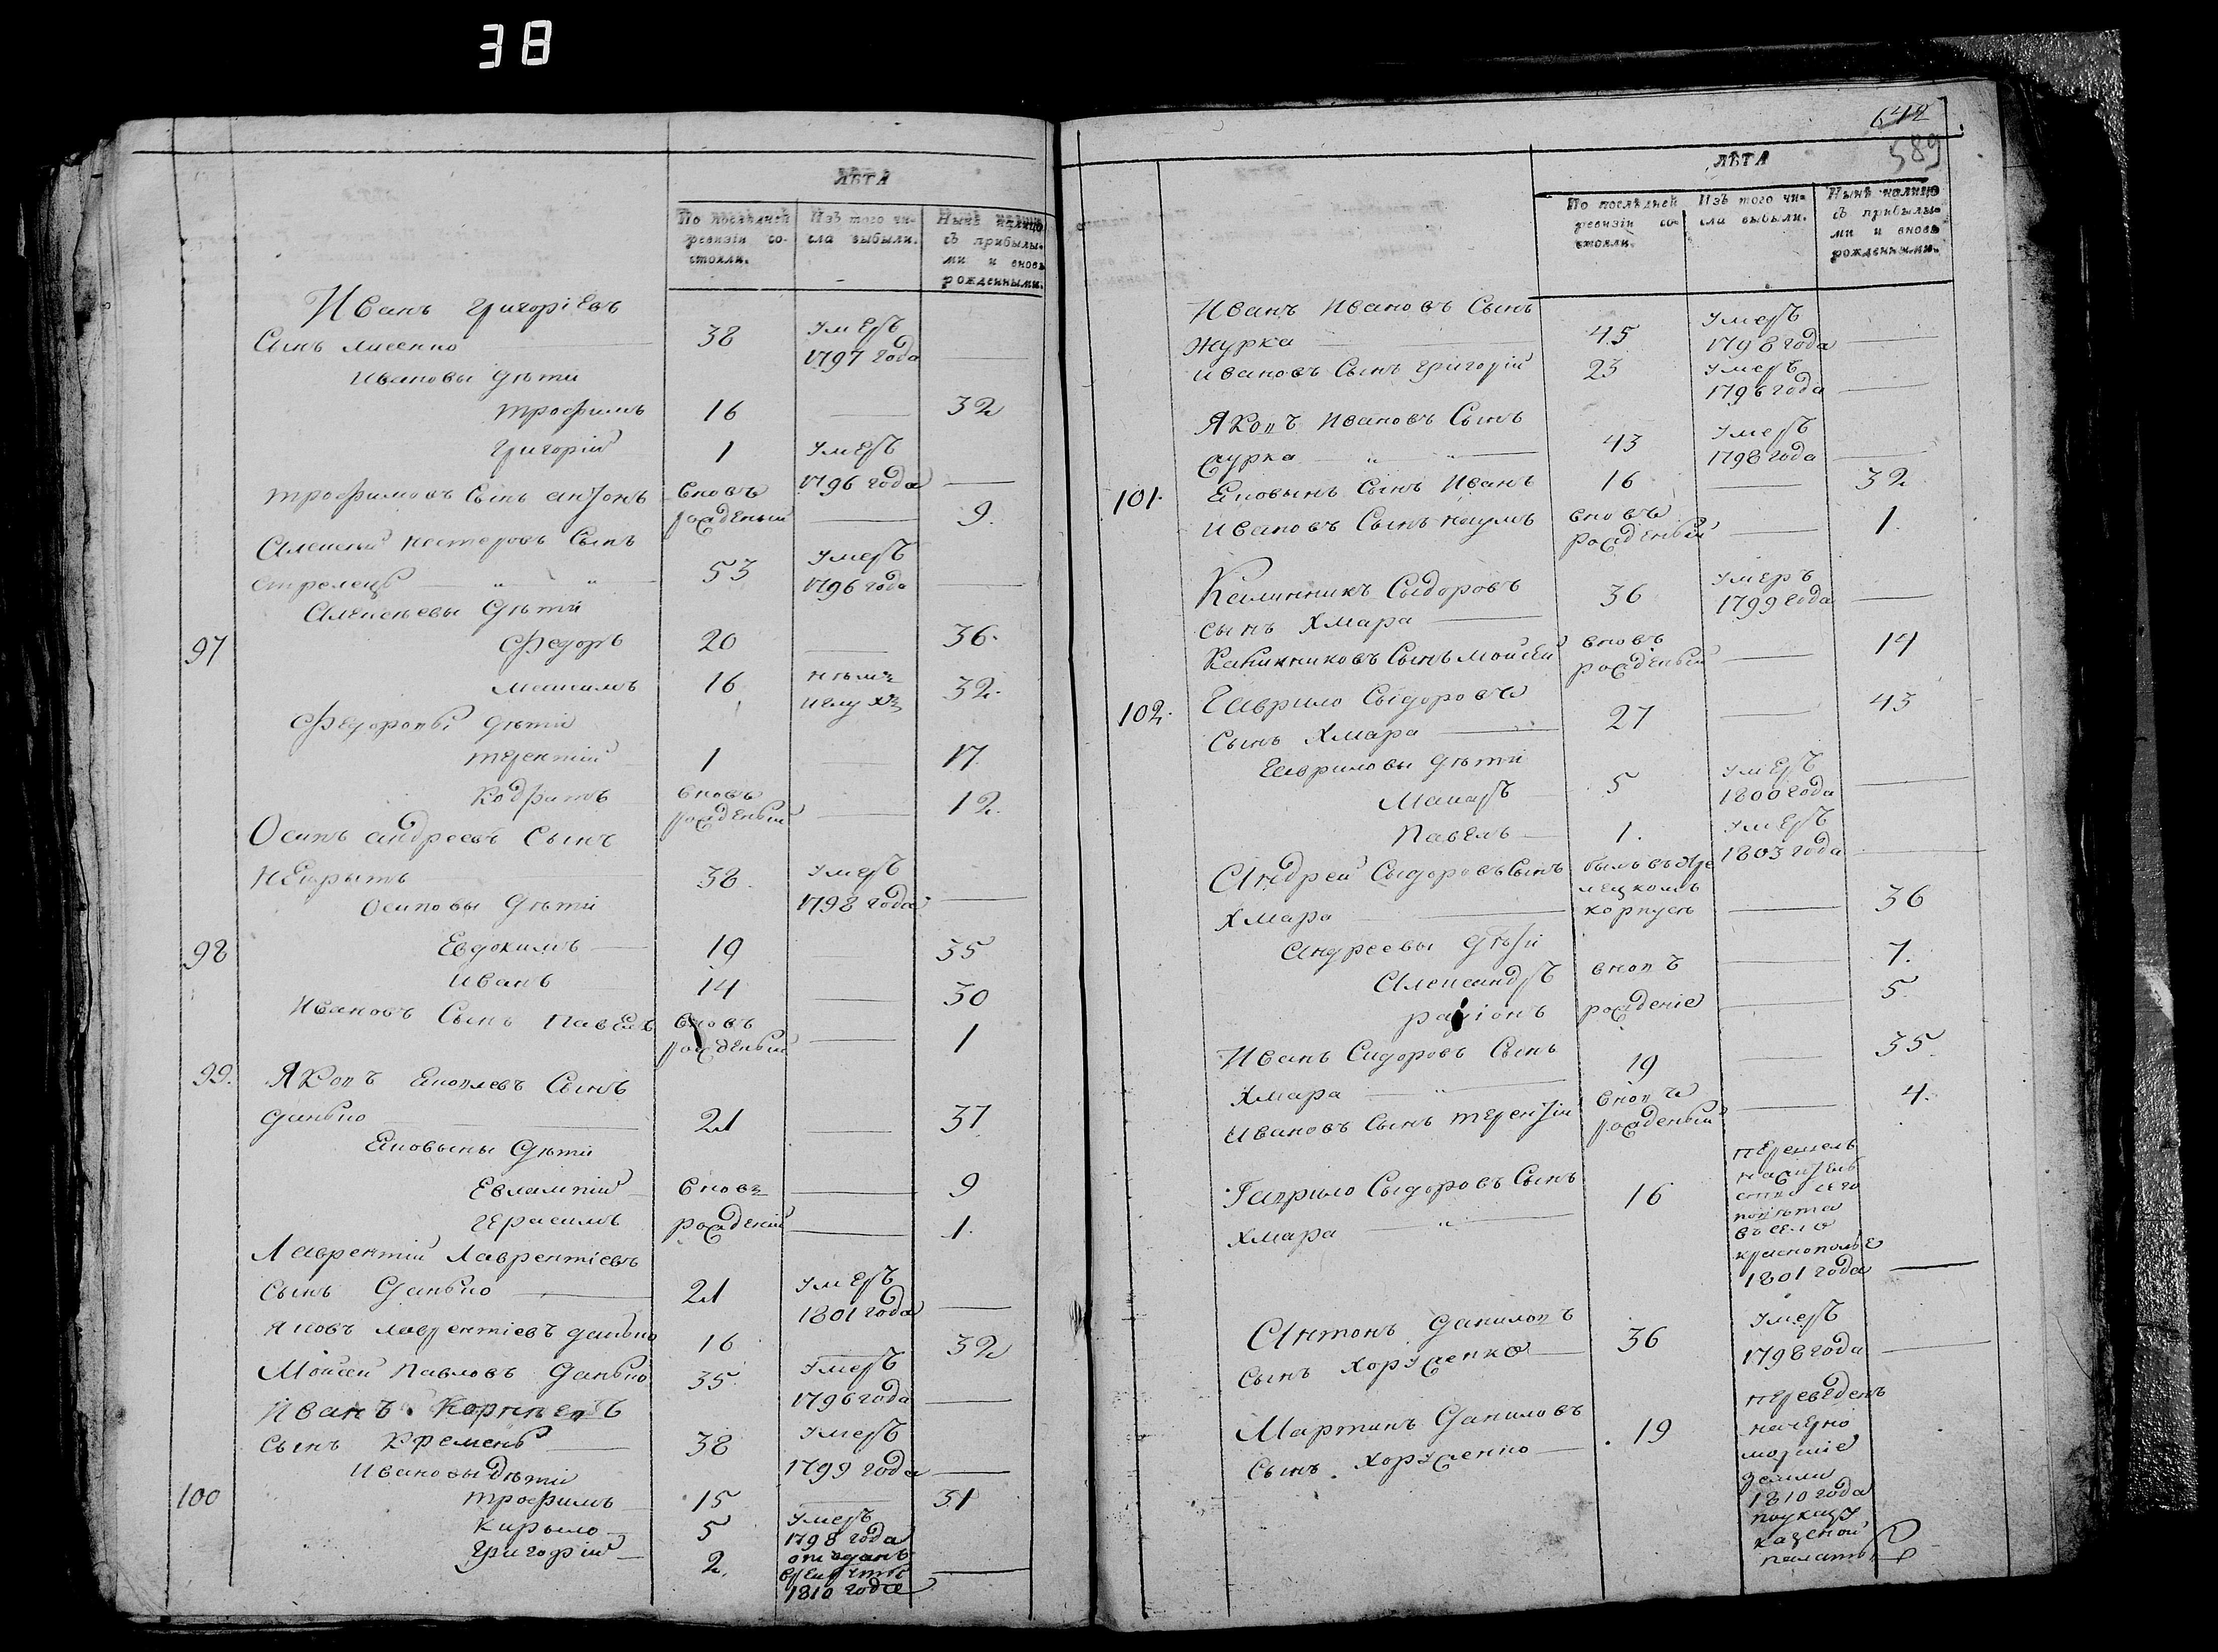 38
ЛѢТА
По послѣдней ревизіи состояли.
Изъ того числа выбыли.
Нынѣ налицо съ прибылыми и вновь рожденными.
Иванъ Григоріевъ
Сынъ лисенко 38 умеръ 1797 года
Ивановы дѣти
трофимъ 16 32
Григорій 1 умеръ 1796 года
трофимовъ Сынъ антонъ вновь рожденый 9.
Алексей нестеровъ Сынъ
стрелецъ 53 умеръ 1796 года
Алексѣевы дѣти
97 Федоръ 20 36.
Максимъ 16 32.
Федоровы дѣти
терентій 1 17
Кодратъ вновь рожденый 12.
Осипъ андреевъ Сынъ
38. умеръ 1798 года
Осиповы дѣти
98 Евдокимъ 19 35
Иванъ 14 30
Ивановъ Сынъ Павелъ вновь рожденый 1
99. Яковъ Сынъ
данько 21 37
дѣти
Евлампій вновь 9
Герасимъ рожденій 1.
Лаврентій Лаврентіевъ
сынъ Данько 21 умеръ 1801 года
Яковъ лаврентіевъ данько 16 32
Мойсей Павловъ Данько 35. умеръ 1796 года
Иванъ Корнеевъ
сынъ Кремень 38 умеръ 1799 года
Ивановы дѣти
100 трофимъ 15 31
Кирыло 5 умеръ 1798 года
Григорій 2. отъданъ в рекруты 1810 года
642
589
ЛѢТА
По послѣдней ревизіи состояли.
Изъ того числа выбыли.
Нынѣ налицо съ прибылыми и вновь рожденными.
Иванъ Ивановъ Сынъ
журка 45 умеръ 1798 года
Ивановъ Сынъ григорій 23 умеръ 1796 года
Яковъ Ивановъ Сынъ
журка 43 умеръ 1798 года
101. Сынъ Иванъ 16 32
Ивановъ Сынъ наумъ вновь рожденый 1.
Калинникъ Сыдоровъ
сынъ Хмара 36 умеръ 1799 года
Калинниковъ Сынъ мойсей вновь рожденый 14
102. Гаврило Сыдоровъ
Сынъ Хмара 27 43
Гавриловы дѣти
Макаръ 5 умеръ 1800 года
Павелъ 1. умеръ 1803 года
Андрей Сыдоровъ Сынъ
Хмара былъ въ корпусе 36
Андреевы дѣти
Александръ вновъ 7.
раріонъ рожденіе 5.
Иванъ Сидоровъ Сынъ
Хмара 19 35.
Ивановъ Сынъ терентій вновь рожденый 4.
Гаврило Сыдоровъ Сынъ
Хмара 16 перешелъ на жителство сего повѣта въ село краснополье 1801 года
Антонъ Даниловъ
Сынъ Хоруженко 36 умеръ 1798 года
Мартинъ Даниловъ
Сынъ Хоруженко 19 переведенъ на черно морские земли 1810 года по указу казеной палаты